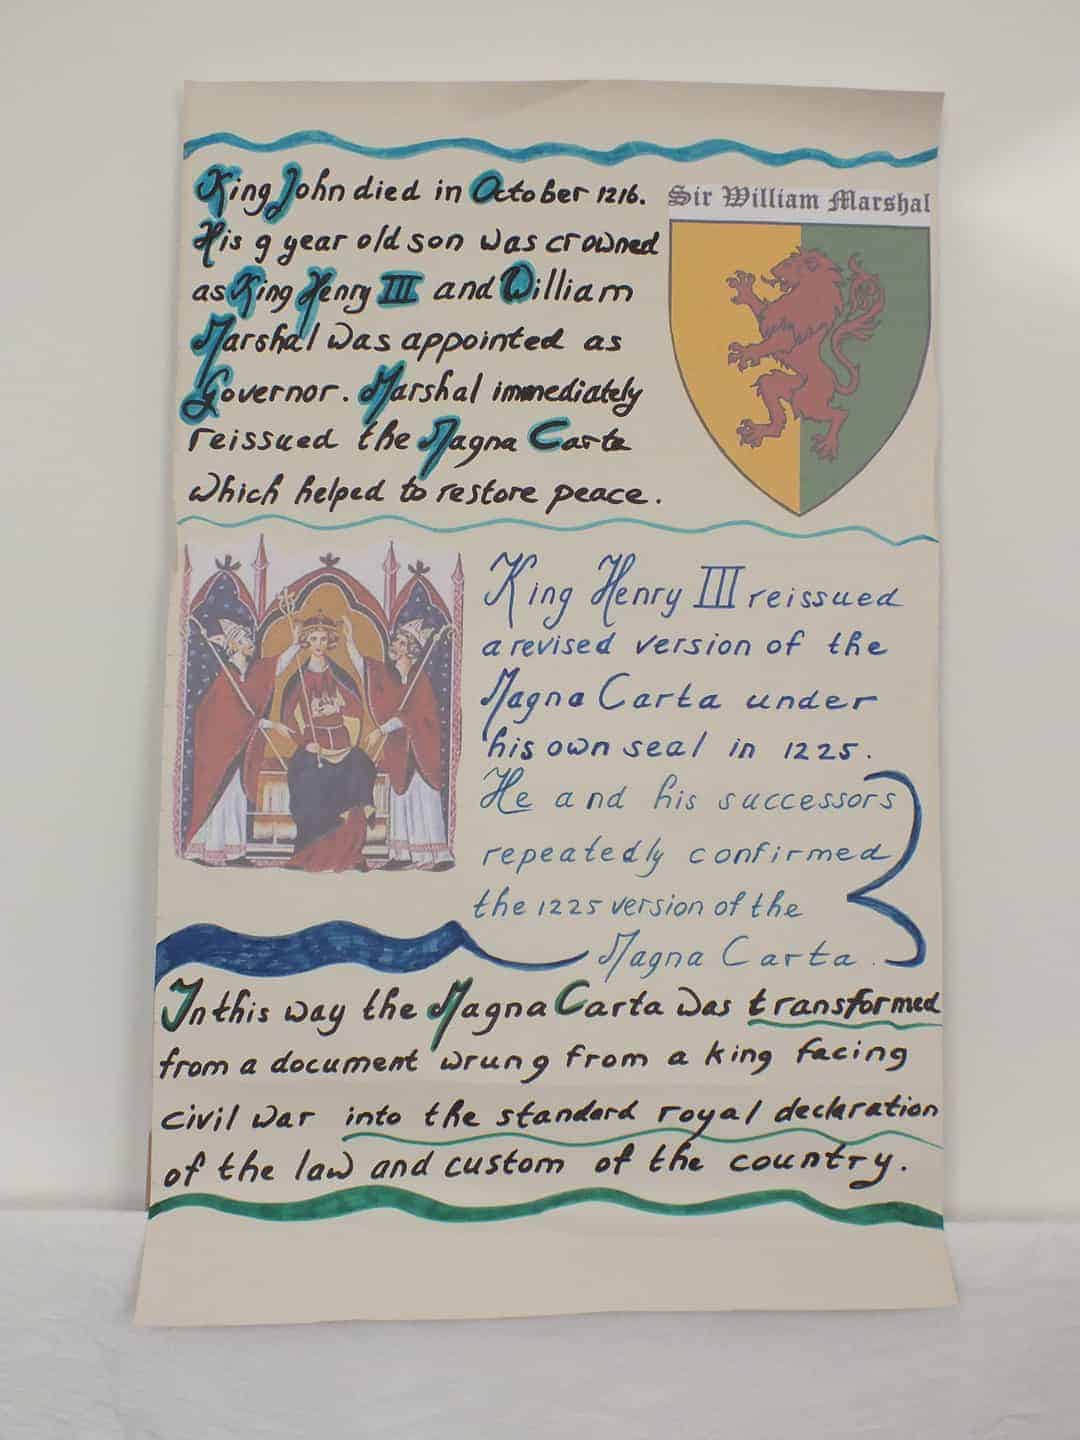 King John died in October 1216.
His 9 year old son was crowned
as King Henry III and William
Marshal was appointed as
Governor. Marshal immediately
reissued the Magna Carta
which helped to restore peace.
Sir William Marshal
King Henry III reissued
a revised version of the
Magna Carta under
his own seal in 1225.
He and his successors
repeatedly confirmed
the 1225 version of the
Magna Carta.
In this way the Magna Carta was transformed
from a document wrung from a king facing
civil war into the standard royal declaration
of the law and custom of the country.